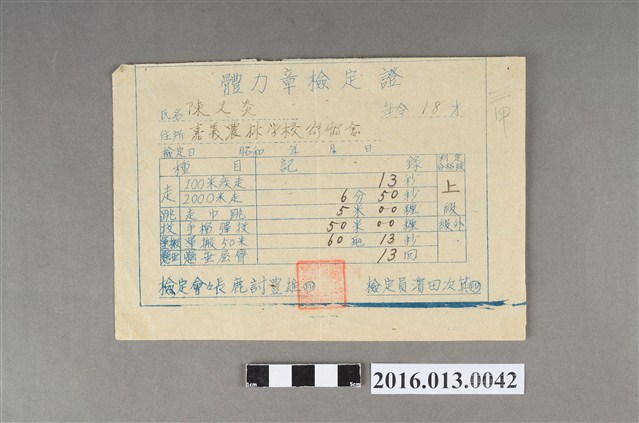 體力章檢定證
三甲
氏名 陳又炎 年令 18才
住所 嘉義農林学校
檢定日 昭和 年 月 日
種目 記錄 判定
走 100米疾走 13秒 上級
2000米走 6分50秒
跳 走巾跳 5米00糎
投 手榴彈投 50米00糎 級外
運搬 運搬50米 60瓩 13秒
懸垂 懸垂屈臂 13回
檢定會々長 鹿討豊雄 印
檢定員 濱田次箕 印
5cm 5cm
2016.013.0042